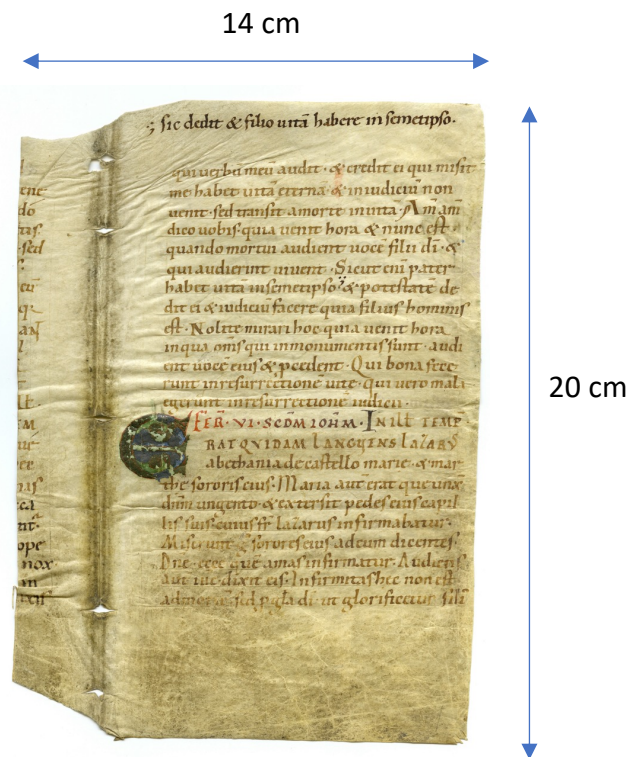 14 cm
⁊ sic dedit & filio uitā habere in semetipso.
qui uerbū meū audit · & credit ei qui misit
me habet uitā eternā & in iudiciū non
uenit · sed transit a morte in uitā · Am̄ am̄
dico uobis · quia uenit hora & nunc est ·
quando mortui audient uocē filii dī · &
qui audierint uiuent · Sicut enī pater
habet uitā in semetipso · & potestatē de
dit ei & iudiciū facere quia filius hominis
est · Nolite mirari hoc quia uenit hora
in qua om̄s qui in monumentis sunt · audi
ent uocē eius & pcedent · Qui bona fece
runt in resurrectionē uite · qui uero mali
egerunt in resurrectionē iudicii ·
FER · VI · SCDM IOHM · IN ILL TEMP
ERAT QVIDAM LANGVENS LAZARVS
a bethania de castello marie & mar
the sororis eius · Maria aut erat que unx
dn̄m ungento · & extersit pedes eius capil
lis suis cuius fr̄ lazarus infirmabatur ·
Miserunt sorores eius ad eum dicentes ·
Dn̄e · ecce quē amas infirmatur · Audiens
aut ihc dixit eis · Infirmitas hec non est
ad mortē · sed p gl̄a dī ut glorificetur fili
sed
ope
nox
20 cm